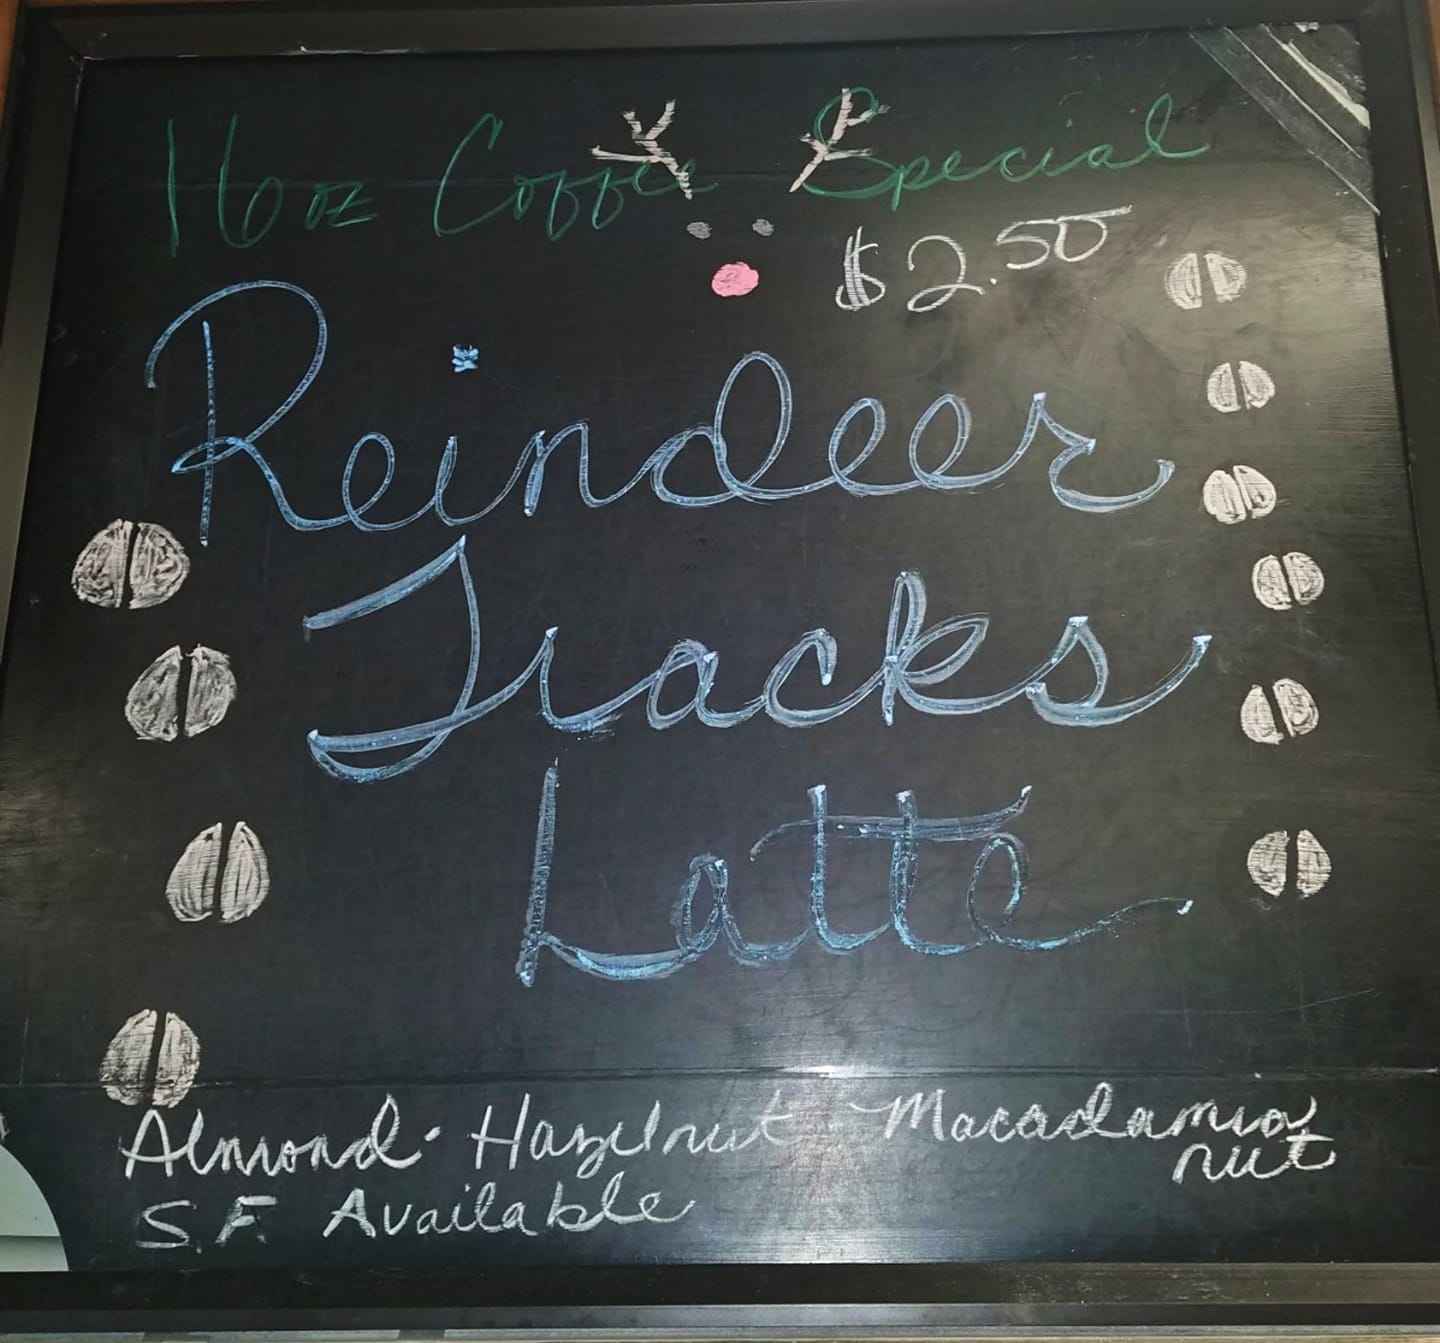 16 oz Coffee Special
$2.50
Reindeer
Tracks
Latte
Almond · Hazelnut · Macadamia
nut
S.F. Available